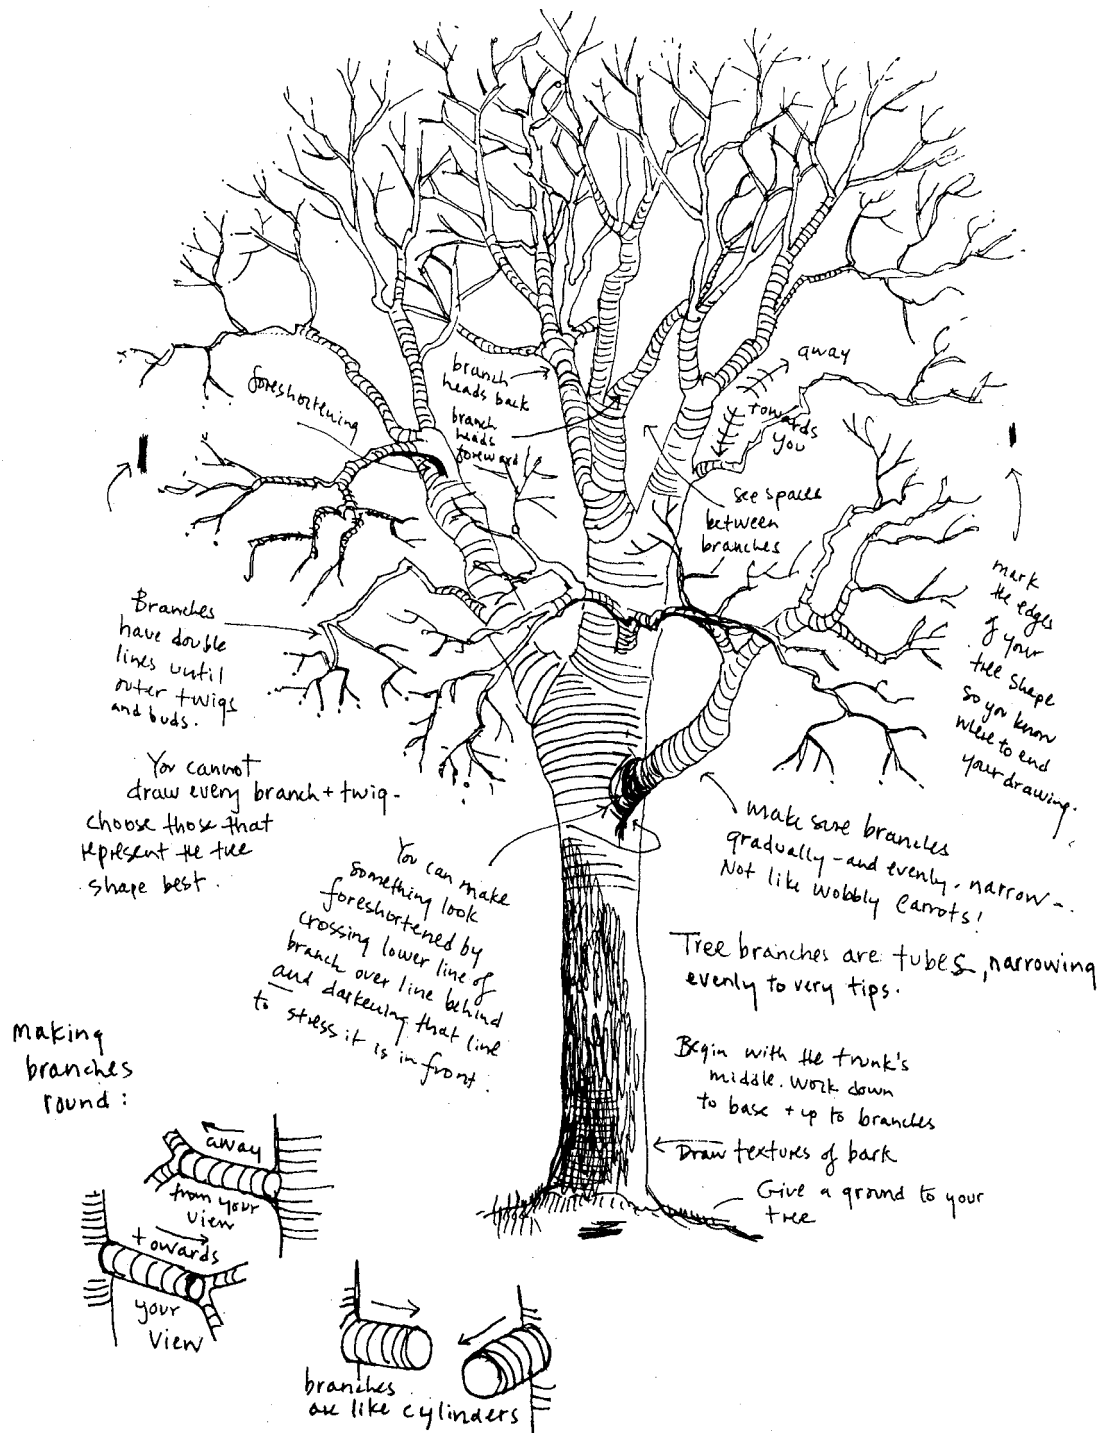 foreshortening
branch
heads back
branch
heads
foreward
away
towards
you
see spaces
between
branches
mark
the edges
of your
tree shape
so you know
where to end
your drawing.
Branches
have double
lines until
outer twigs
and buds.
You cannot
draw every branch + twig -
choose those that
represent the tree
shape best.
You can make
something look
foreshortened by
crossing lower line of
branch over line behind
and darkening that line
to stress it is in front.
make sure branches
gradually - and evenly, narrow -.
Not like wobbly carrots!
Tree branches are tubes, narrowing
evenly to very tips.
Begin with the trunk's
middle. Work down
to base + up to branches
Draw textures of bark
Give a ground to your
tree
Making
branches
round:
away
from your
view
towards
your
view
branches
are like cylinders